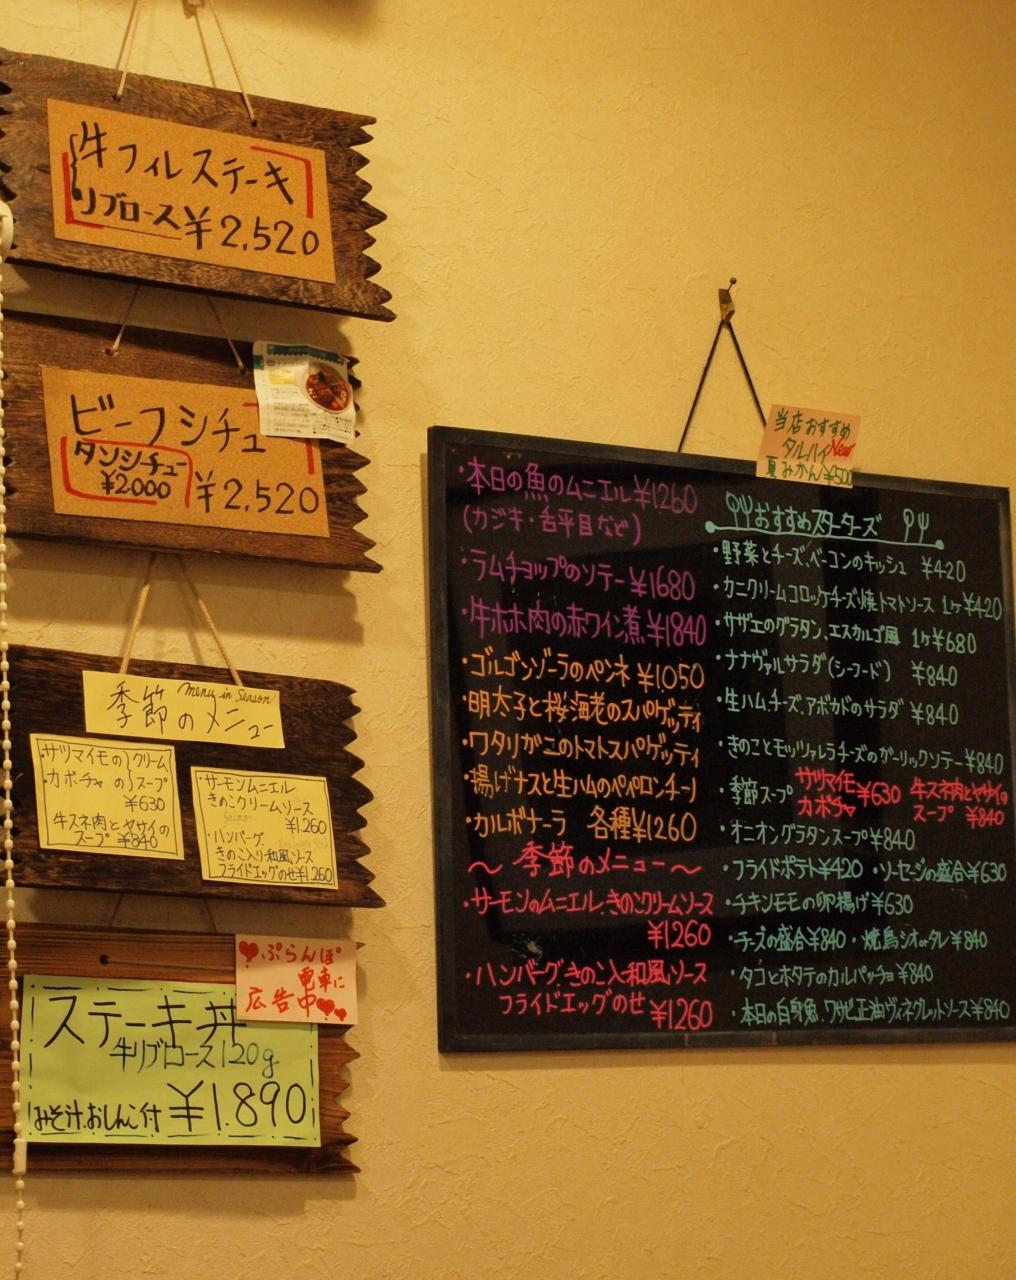 牛フィレステーキ
リブロース¥2,520
ビーフシチュ
タンシチュー
¥2000
¥2,520
季節のメニュー
menu in season
サツマイモの クリーム
カボチャの スープ
¥630
牛スネ肉とヤサイの
スープ ¥840
サーモンムニエル
きのこクリームソース
¥1,260
・ハンバーグ.
きのこ入り和風ソース
フライドエッグのせ¥1260
ぷらんぽ
電車に
広告中
ステーキ丼
牛リブロース120g
みそ汁.おしんこ付 ¥1.890
当店おすすめ
タルハイ New
夏みかん¥500
・本日の魚のムニエル¥1260
(カジキ・舌平目など)
・ラムチョップのソテー¥1680
・牛ホホ肉の赤ワイン煮¥1840
・ゴルゴンゾーラのペンネ ¥1.050
・明太子と桜海老のスパゲッティ
・ワタリがこのトマトスパゲッティ
・揚げナスと生ハムのペペロンチーノ
・カルボナーラ 各種¥1260
～ 季節のメニュー ～
・サーモンのムニエル.きのこクリームソース
¥1260
・ハンバーグ.きのこ入和風ソース
フライドエッグのせ ¥1260
おすすめスターターズ
・野菜とチーズ、ベーコンのキッシュ ¥420
・カニクリームコロッケチーズ焼トマトソース 1ヶ¥420
・サザエのグラタン、エスカルゴ風 1ヶ¥680
・ナナヴァルサラダ(シーフード) ¥840
・生ハムチーズ、アボカドのサラダ ¥840
・きのことモッツァレラチーズのガーリックソテー¥840
・季節スープ サツマイモ カボチャ ¥630 牛スネ肉とヤサイの スープ ¥840
・オニオングラタンスープ¥840
・フライドポテト¥420 ・ソーセージの盛合¥630
・チキンモモの卵揚げ¥630
・チーズの盛合¥840 ・焼鳥シオorタレ¥840
・タコとホタテのカルパッチョ¥840
・本日の白身魚、ワサビ正油ヴィネグレットソース¥840